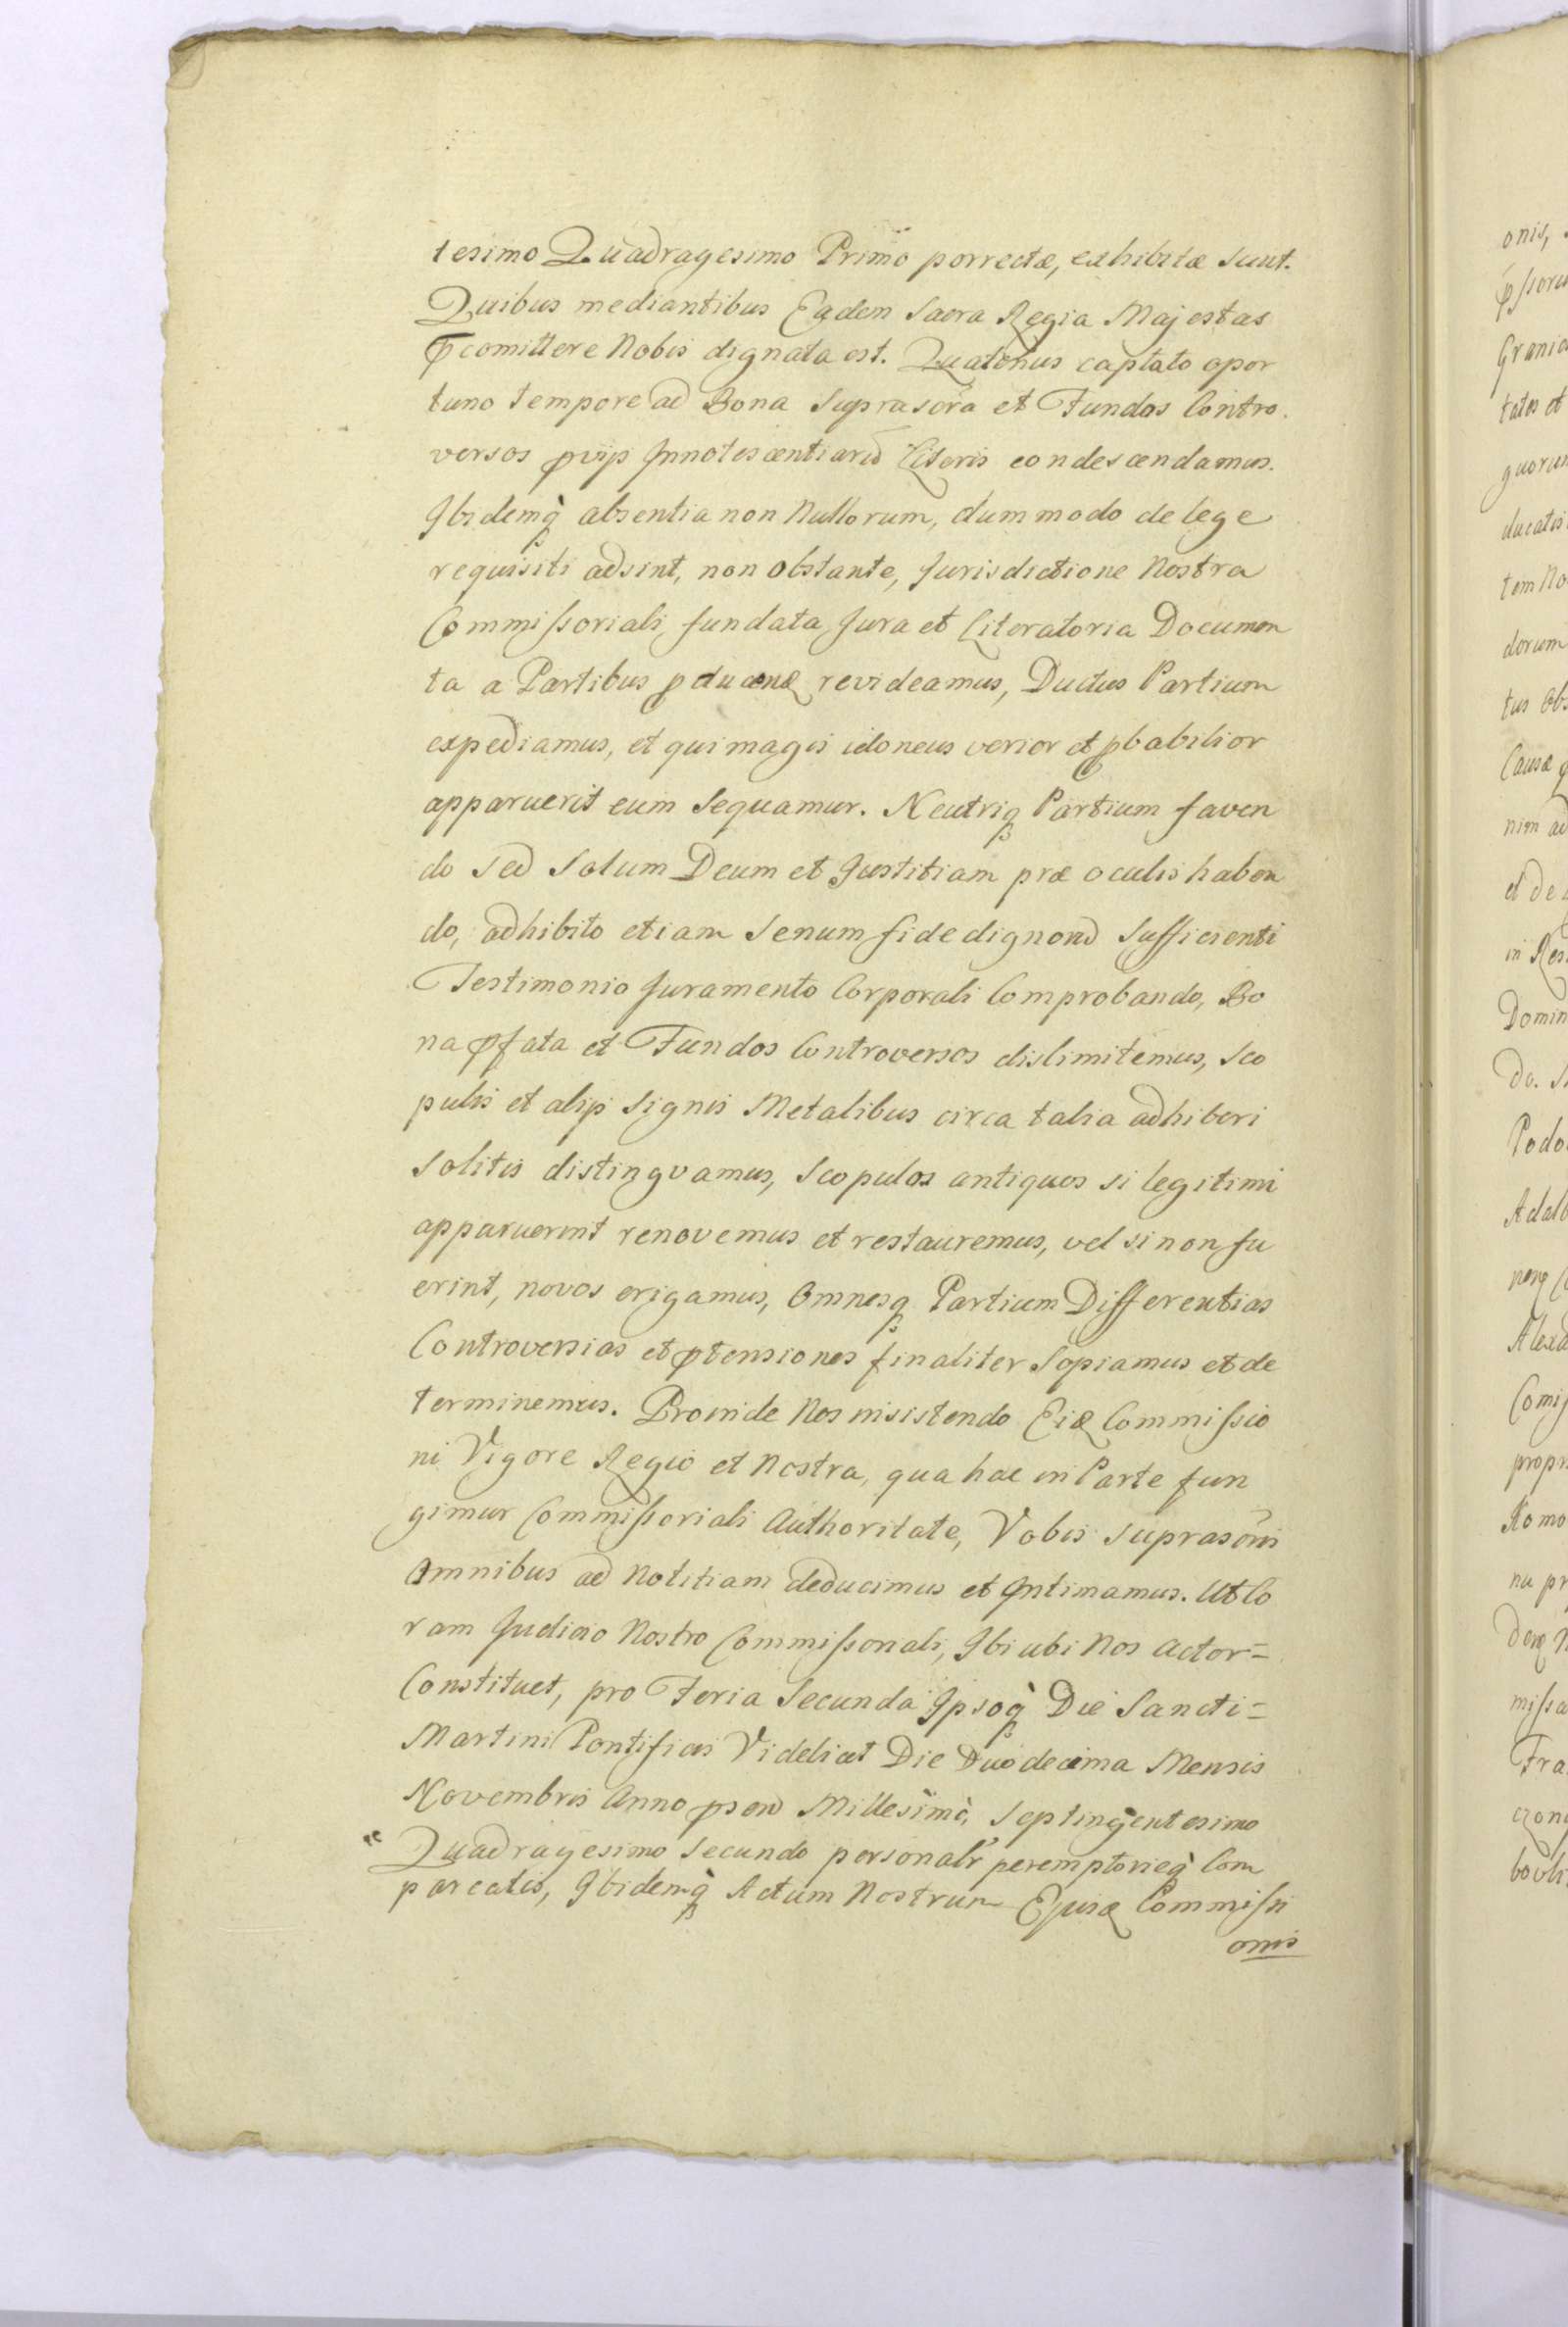 tesimo Quadragesimo Primo porrectæ, exhibitæ sunt.
Quibus mediantibus Eadem Sacra Regia Majestas
comittere Nobis dignata est. Quatenus captato opor
tuno tempore ad Bona suprascra et Fundos Contro
versos pvijs Innotescentiaru Literis condescendamus.
Ibidemq absentia non Nullorum, dummodo de lege
requisiti adsint, non obstante, Jurisdictione Nostra
Commissoriali fundata Jura et Literatoria Documen
ta a Partibus pducenda revideamus, Ductus Partium
expediamus, et qui magis idoneus verior et pbabilior
apparuerit eum sequamur. Neutriq Partium faven
do sed solum Deum et Justitiam præ oculis haben
do, adhibito etiam senum fide dignoru sufficienti
Testimonio Juramento Corporali Comprobando, Bo
na pfata et Fundos Controversos dislimitemus, Sco
pulis et alijs signis Metalibus circa talia adhiberi
solitis distingvamus, Scopulos antiquos si legitimi
apparuerint renovemus et restauremus, vel si non fu
erint, novos erigamus, Omnesq Partium Differentias
Controversias et ptensiones finaliter sopiamus et de
terminemus. Proinde Nos insistendo Commissio
ni Vigore Regio et Nostra, qua hac in Parte fun
gimur Commissoriali Authoritate, Vobis suprascris
Omnibus ad Notitiam deducimus et Intimamus. Ut Co
ram Judicio Nostro Commissoriali, Ibi ubi Nos Actor=
Constituet, pro Feria Secunda Ipsoq Die Sancti=
Martini Pontificis Videlicet Die Duodecima Mensis
Novembris Anno Millesimo, Septingentesimo
Quadragesimo Secundo personalr peremptorieq Com
pareatis, Ibidemq Actum Nostrum Commissi
onis
onis,
Grani
tates et
quorum
ducatis
tem No
dorum
tus Obs
Causæ
nim ad
et de
in Res
Domin
do. S
Podo
Adalb
Alexa
Comis
propr
Komo
na pr
missa
Fra
czony